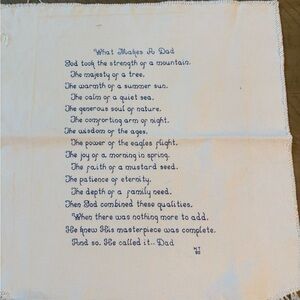 What Makes A Dad
God took the strength of a mountain.
The majesty of a tree.
The warmth of a summer sun.
The calm of a quiet sea.
The generous soul of nature.
The comforting arm of night.
The wisdom of the ages.
The power of the eagles flight.
The joy of a morning in spring.
The faith of a mustard seed.
The patience of eternity.
The depth of a family need.
Then God combined these qualities.
When there was nothing more to add.
He knew His masterpiece was complete.
And so, He called it.. Dad